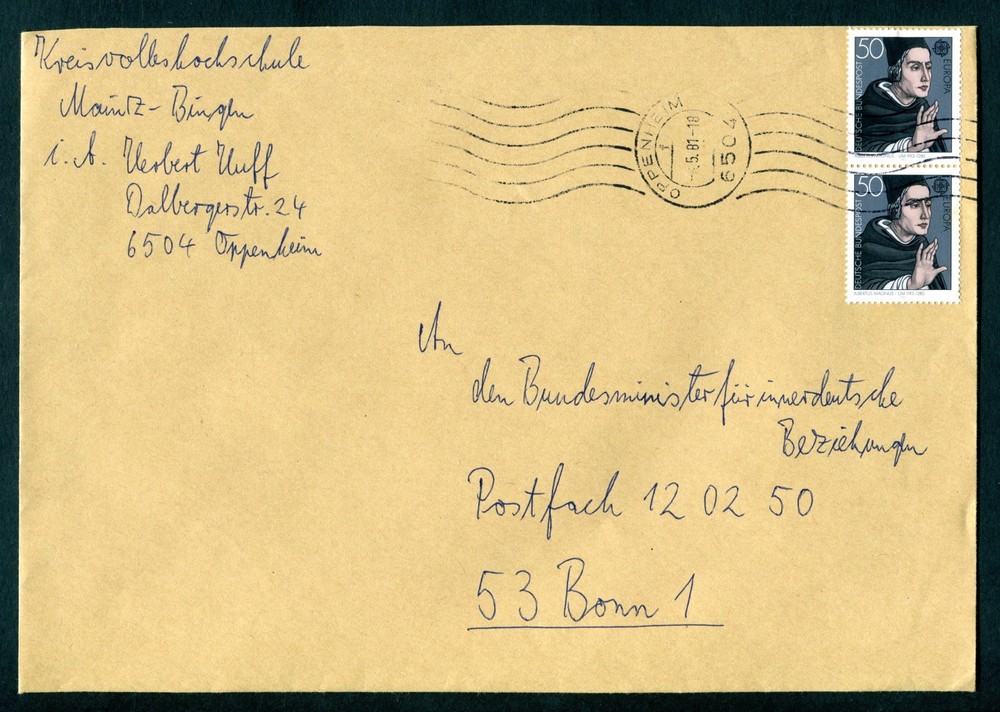 Kreisvolkshochschule
Mainz-Bingen
i. A. Herbert Huff
Dalbergerstr. 24
6504 Oppenheim
OPPENHEIM
1
-5.81-18
6504
50
DEUTSCHE BUNDESPOST
EUROPA
50
DEUTSCHE BUNDESPOST
EUROPA
ALBERTUS MAGNUS · UM 1193-1280
An
den Bundesminister für innerdeutsche
Beziehungen
Postfach 12 02 50
53 Bonn 1